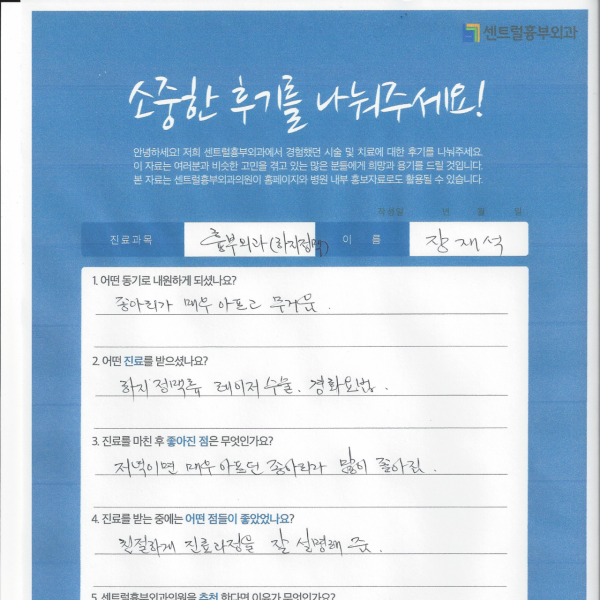 센트럴흉부외과
소중한 후기를 나눠주세요!
안녕하세요! 저희 센트럴흉부외과에서 경험했던 시술 및 치료에 대한 후기를 나눠주세요.
이 자료는 여러분과 비슷한 고민을 겪고 있는 많은 분들에게 희망과 용기를 드릴 것입니다.
본 자료는 센트럴흉부외과의원이 홈페이지와 병원 내부 홍보자료로도 활용될 수 있습니다.
작성일 년 월 일
진료과목 흉부외과(하지정맥) 이 름 장재석
1. 어떤 동기로 내원하게 되셨나요?
종아리가 매우 아프고 무거움.
2. 어떤 진료를 받으셨나요?
하지정맥류 레이저수술. 경화요법.
3. 진료를 마친 후 좋아진 점은 무엇인가요?
저녁이면 매우 아프던 종아리가 많이 좋아짐.
4. 진료를 받는 중에는 어떤 점들이 좋았었나요?
친절하게 진료과정을 잘 설명해 줌.
5. 센트럴흉부외과의원을 추천 한다면 이유가 무엇인가요?